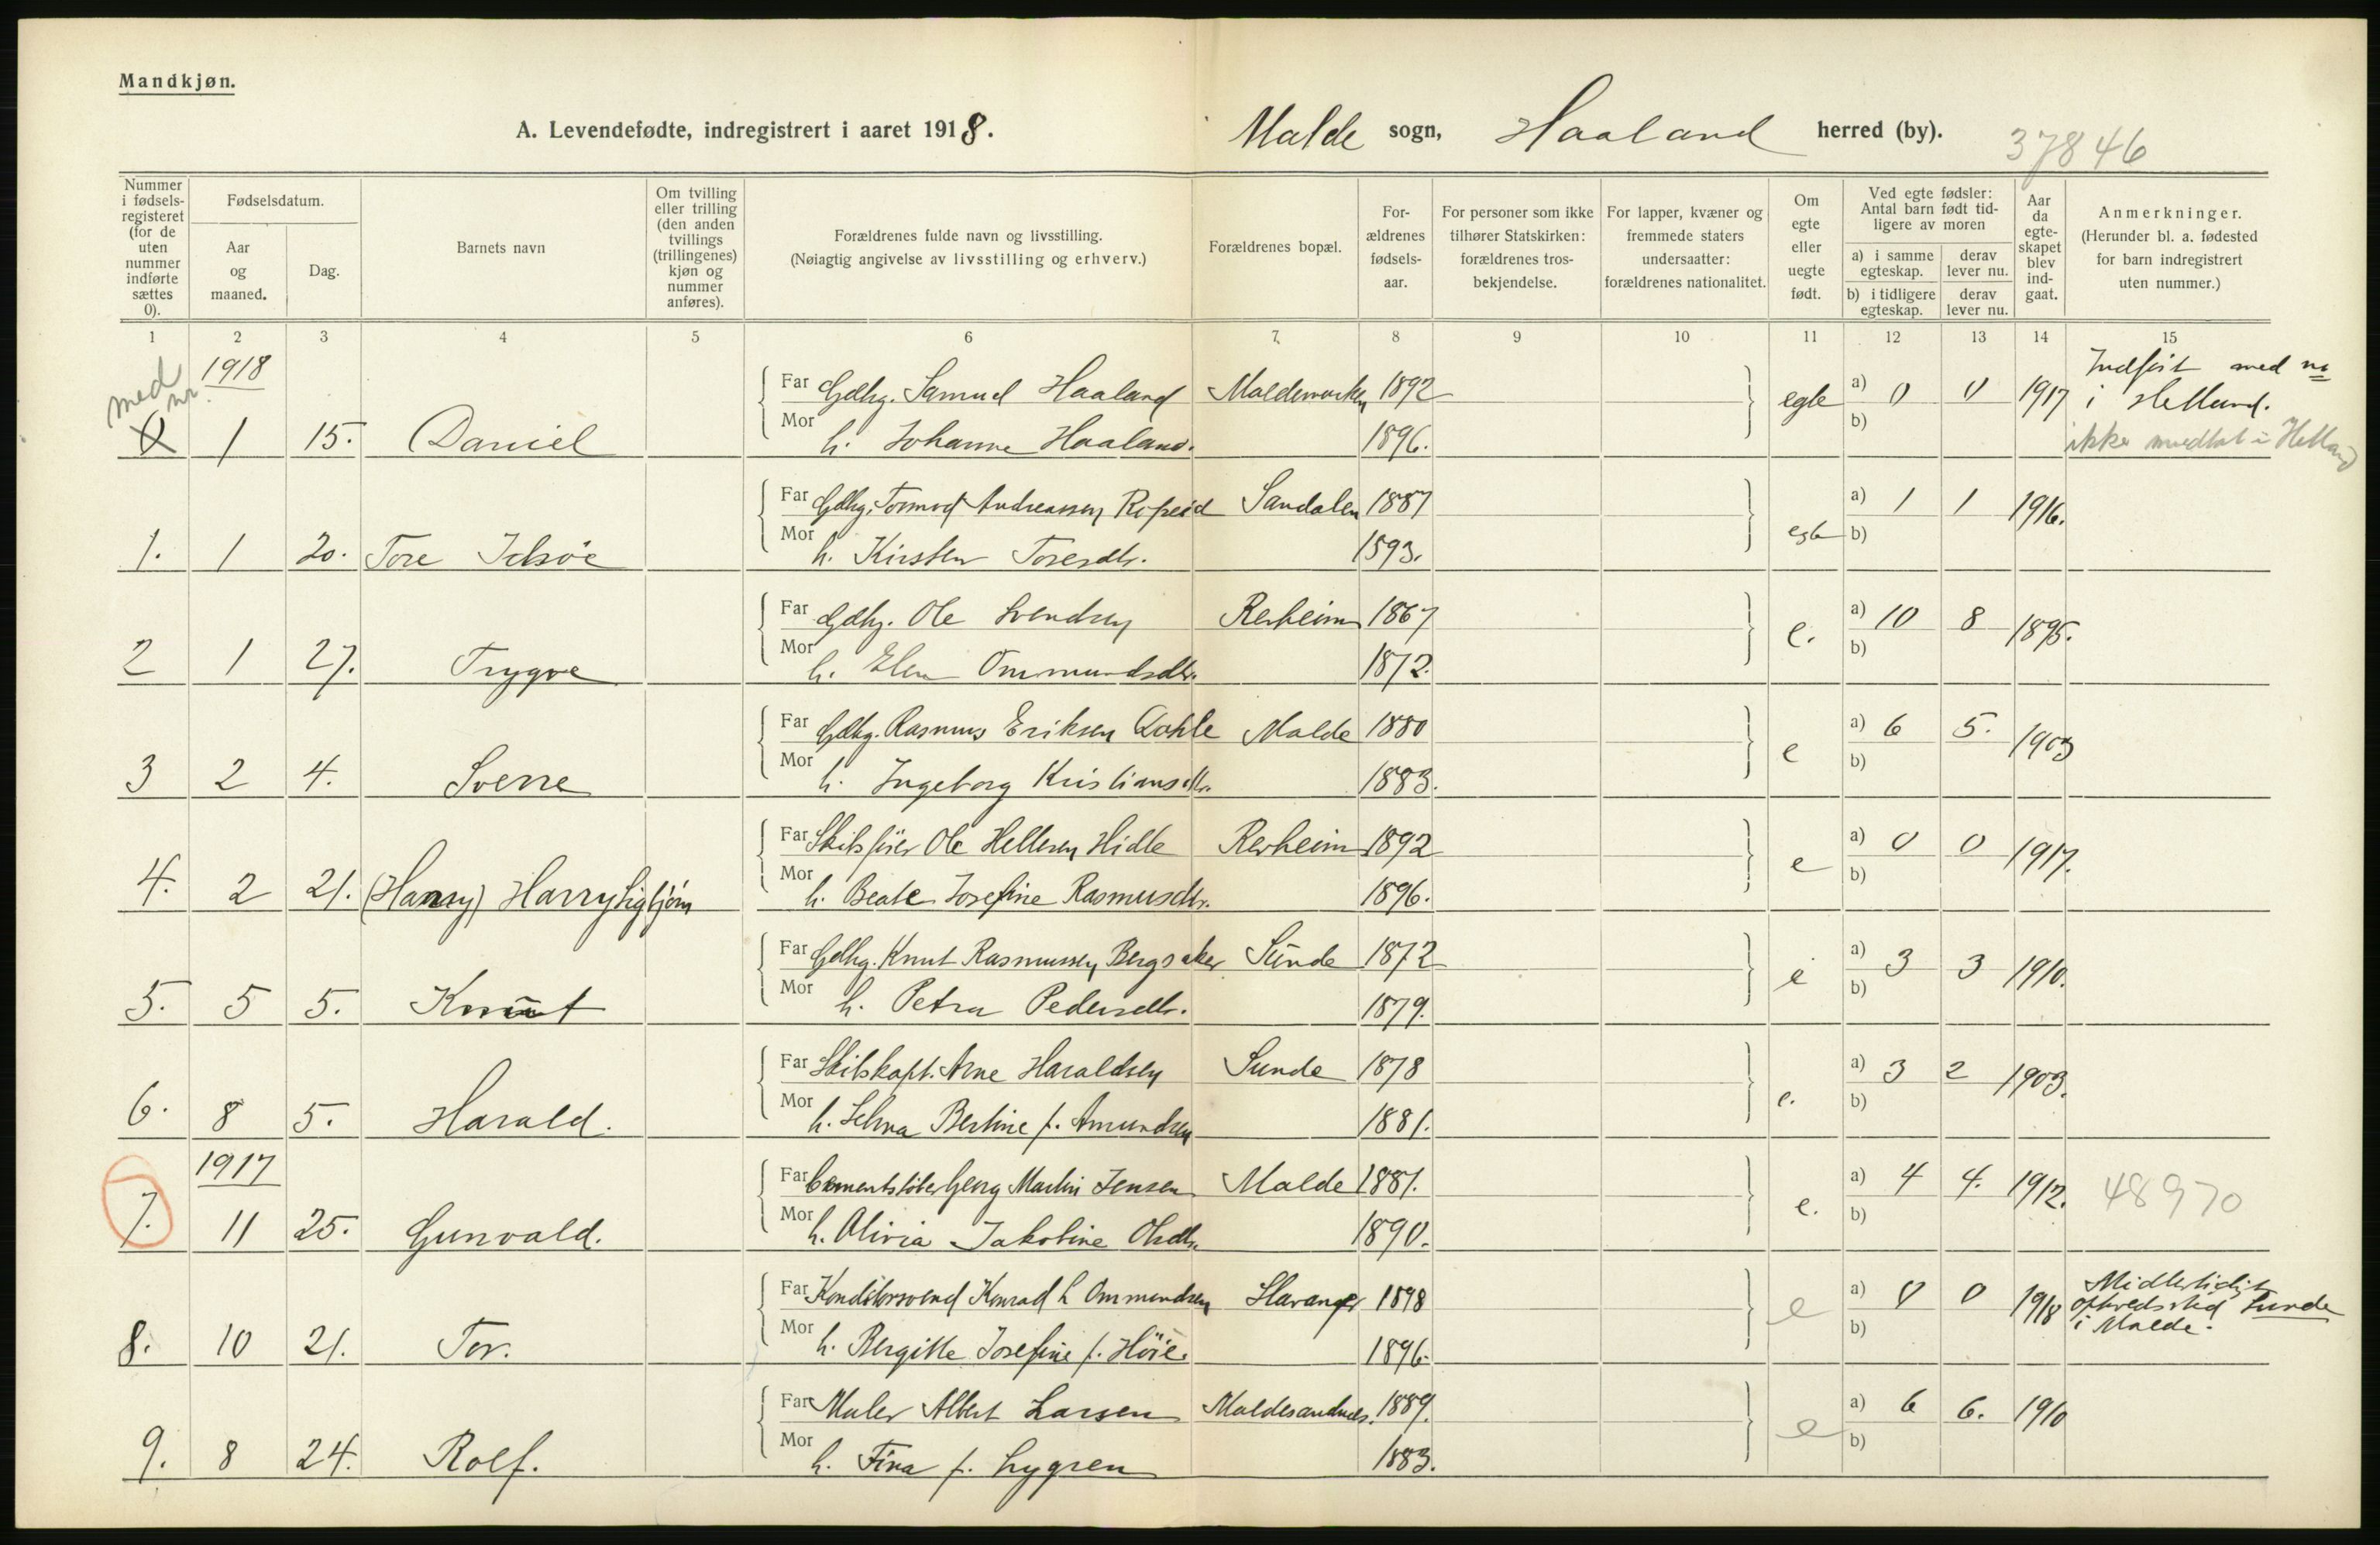 Mandkjøn.
A. Levendefødte, indregistrert i aaret 1918. Malde sogn, Haaland herred (by). 37846
Nummer i fødsels-registeret (for de uten nummer indførte sættes 0).
Fødselsdatum.
Aar og maaned.
Dag.
Barnets navn
Om tvilling eller trilling (den anden tvillings (trillingenes) kjøn og nummer anføres).
Forældrenes fulde navn og livsstilling. (Nøiagtig angivelse av livsstilling og erhverv.)
Forældrenes bopæl.
For-ældrenes fødsels-aar.
For personer som ikke tilhører Statskirken: forældrenes tros-bekjendelse.
For lapper, kvæner og fremmede staters undersaatter: forældrenes nationalitet.
Om egte eller uegte født.
Ved egte fødsler: Antal barn født tid-ligere av moren
a) i samme egteskap. derav lever nu.
b) i tidligere egteskap. derav lever nu.
Aar da egte-skapet blev ind-gaat.
Anmerkninger. (Herunder bl. a. fødested for barn indregistrert uten nummer.)
1 2 3 4 5 6 7 8 9 10 11 12 13 14 15
med nr. 1918
Far Gdbg. Samuel Haaland Maldemarken 1892 egte a) 0 0 1917 Indført med no i Hetland.
0 1 15. Daniel Mor h. Johanne Haaland. 1896. b) ikke medtat i Hetland
Far Gdbg. Tormod Andreassen Ropeid Sandalen 1887 a) 1 1 1916.
1. 1 20. Tore Jelsøe Mor h. Kirsten Toresdtr. 1893. egte b)
Far Gdbg. Ole Svendsen Revheim 1867 e. a) 10 8 1895.
2 1 27. Trygve Mor h. Elen Ommundsdtr. 1872. b)
Far Gdbg. Rasmus Eriksen Malde 1880 e a) 6 5. 1903
3 2 4. Sverre Mor h. Ingeborg Kristiansdtr. 1883. b)
Far Skibsfører Ole Hellesen Hidle Revheim 1892 e a) 0 0 1917.
4. 2 21. (Harry) Harry Sigbjørn Mor h. Beate Josefine Rasmusdtr. 1896. b)
Far Gdbg. Knut Rasmussen Bergsaker Sunde 1872 e a) 3 3 1910.
5. 5 5. Knut Mor h. Petra Pedersdtr. 1879. b)
Far Skibskapt. Arne Haraldsen Sunde 1878 e. a) 3 2 1903.
6. 8 5. Harald. Mor h. Selma Bertine f. Amundsen 1881. b)
1917
Far Cementstøber Georg Martin Jensen Malde 1881. e. a) 4 4. 1912. 48970
7. 11 25. Gunvald. Mor h. Olivia Jakobine Olsdtr. 1890. b)
Far Konditorsvend Konrad L Ommundsen Stavanger 1898 e a) 0 0 1918 Midlertidigt opholdssted Sunde i Malde.
8. 10 21. Tor. Mor h. Bergitte Josefine f. Høie. 1896. b)
Far Maler Albert Larsen 1889. e a) 6 6. 1910
9. 8 24. Rolf. Mor h. Fina f. Lygren 1883. b)